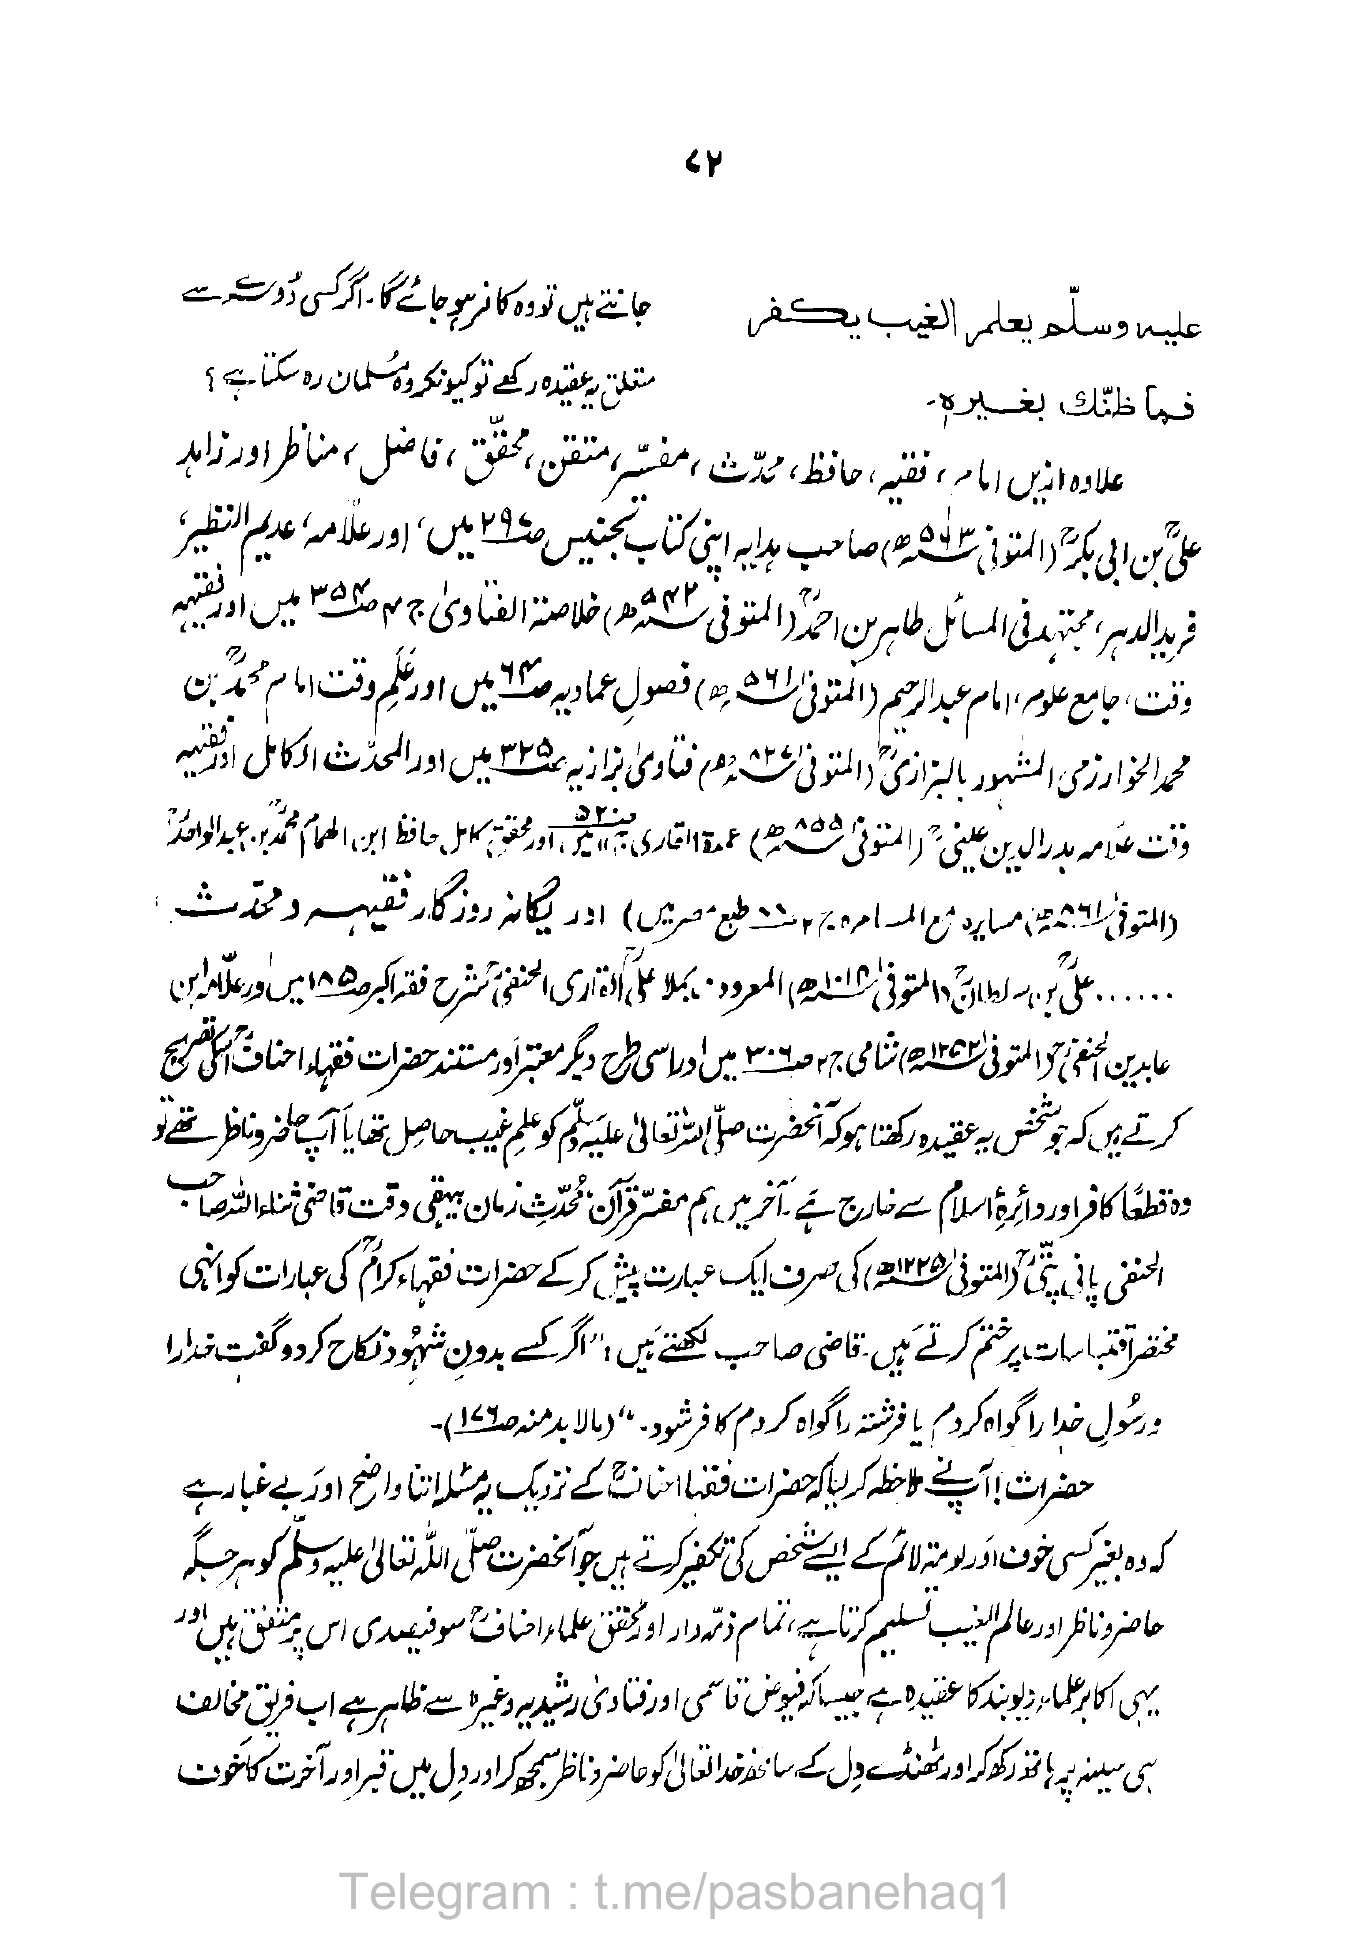 ۷۲
علیہ وسلّم یعلم الغیب یکفر
فما ظنّك بغیرہ۔
جانتے ہیں تو وہ کافر ہو جائے گا۔ اگر کسی دُوسرے سے
متعلق یہ عقیدہ رکھے تو کیونکر وہ مُسلمان رہ سکتا ہے؟
علاوہ ازیں امام، فقیہ، حافظ، محدّث، مفسّر، متقن، محققّ، فاضل، مناظر اور زاہد
علیؒ بن ابی بکرؒ (المتوفی ۵۹۳ھ) صاحب ہدایہ اپنی کتاب تجنیس ص۲۹۷ میں، اور علّامہ، عدیم النظیر،
فرید الدہر، مجتہد فی المسائل طاہر بن احمدؒ (المتوفی ۵۴۲ھ) خلاصۃ الفتاویٰ ج۴ ص۳۵۴ میں اور فقیہہ
وقت، جامع علوم، امام عبدالرحیم (المتوفیٰ ۵۶۱ھ) فصولِ عمادیہ ص۶۴ میں اور عَلَمِ وقت امام محمدؒ بن
محمد الخوارزمی المشہور بالبزازیؒ (المتوفیٰ ۸۲۷ھ) فتاویٰ بزازیہ ص۳۲۵ میں اور المحدّث الکامل اور فقیہہ
وقت علّامہ بدرالدین عینیؒ (المتوفیٰ ۸۵۵ھ) عمدۃ القاری ج۱۱ ص۵۲۰ میں، اور محقق کامل حافظ ابن الھمام محمدؒ بن عبدالواحدؒ
(المتوفیٰ ۸۶۱ھ) مسایرہ مع المسامرہ ج۲ ص۸۸ طبع مصر میں) اور یگانہ روزگار فقیہہ و محدّث
......علیؒ بن سلطانؒ (المتوفیٰ ۱۰۱۴ھ) المعروف بملا علی القاری الحنفیؒ شرح فقہ اکبر ص۱۸۵ میں اور علّامہ ابن
عابدین الحنفیؒ (المتوفیٰ ۱۲۵۲ھ) شامی ج۲ ص۳۰۶ میں اور اسی طرح دیگر معتبر اور مستند حضرات فقہاء احنافؒ اسکی تصریح
کرتے ہیں کہ جو شخص یہ عقیدہ رکھتا ہو کہ آنحضرت صلّی اللہ تعالیٰ علیہ وسلّم کو علمِ غیب حاصل تھا یا آپ حاضر و ناظر تھے تو
وہ قطعًا کافر اور دائرۂ اسلام سے خارج ہے۔ آخر میں ہم مفسّرِ قرآن مُحدّثِ زمان بیہقی وقت قاضی ثناء اللہ صاحب
الحنفی پانی پتّیؒ (المتوفیٰ ۱۲۲۵ھ) کی صرف ایک عبارت پیش کر کے حضرات فقہاء کرامؒ کی عبارات کو انہی
مختصر اقتباسات پر ختم کرتے ہیں۔ قاضی صاحب لکھتے ہیں: "اگر کسے بدونِ شہُود نکاح کرد و گفت خدا را
و رسُولِ خدا را گواہ کردم یا فرشتہ را گواہ کردم کافر شود۔" (مالا بد منہ ص۱۷۶)۔
حضرات! آپ نے ملاحظہ کر لیا کہ حضرات فقہاء احنافؒ کے نزدیک یہ مسئلہ اتنا واضح اور بے غبار ہے
کہ وہ بغیر کسی خوف اور لومۃ لائم کے ایسے شخص کی تکفیر کرتے ہیں جو آنحضرت صلّی اللہ تعالیٰ علیہ وسلّم کو ہر جگہ
حاضر و ناظر اور عالم الغیب تسلیم کرتا ہے، تمام ذمّہ دار اور محقق علماء احنافؒ سو فیصدی اس پر متفق ہیں اور
یہی اکابر علماء دیوبند کا عقیدہ ہے جیسا کہ فیوض قاسمی اور فتاویٰ رشیدیہ وغیرہ سے ظاہر ہے اب فریق مخالف
ہی سینہ پہ ہاتھ رکھ کر اور ٹھنڈے دِل کے ساتھ خدا تعالیٰ کو حاضر و ناظر سمجھ کر اور دِل میں قبر اور آخرت کا خوف
Telegram : t.me/pasbanehaq1